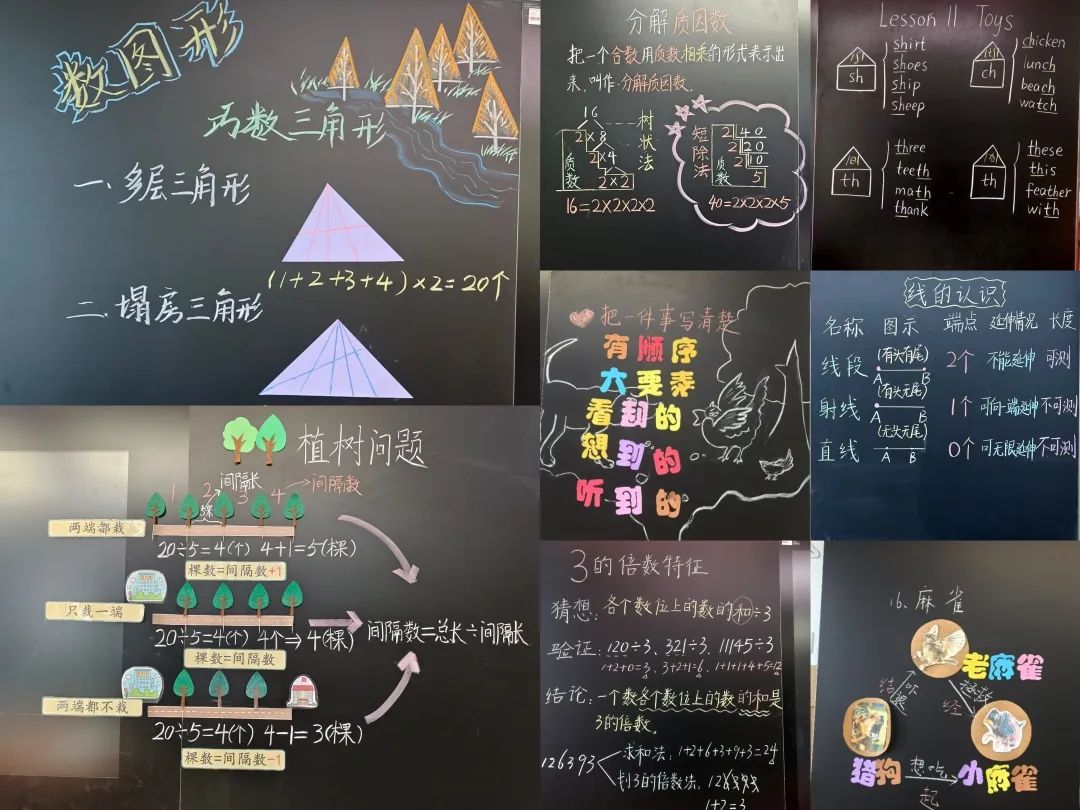 数图形
巧数三角形
一、多层三角形
(1+2+3+4)×2=20个
二、塌房三角形
分解质因数
把一个合数用质数相乘的形式表示出
来,叫作分解质因数。
16
2×8
2×4
2×2
质数
树状法
16=2×2×2×2
短除法
2 40
2 20
2 10
5
质数
40=2×2×2×5
Lesson 11 Toys
/ʃ/
sh
shirt
shoes
ship
sheep
/tʃ/
ch
chicken
lunch
beach
watch
/θ/
th
three
teeth
math
thank
/ð/
th
these
this
feather
with
把一件事写清楚
有顺序
六要素
看到的
想到的
听到的
线的认识
名称 图示 端点 延伸情况 长度
线段 (有头有尾) A B 2个 不能延伸 可测
射线 (有头无尾) A B 1个 可向一端延伸 不可测
直线 (无头无尾) A B 0个 可无限延伸 不可测
植树问题
间隔长
1 2 3 4 →间隔数
5米
两端都栽
20÷5=4(个) 4+1=5(棵)
棵数=间隔数+1
只栽一端
20÷5=4(个) 4个⇒4(棵)
棵数=间隔数
两端都不栽
20÷5=4(个) 4-1=3(棵)
棵数=间隔数-1
间隔数=总长÷间隔长
3的倍数特征
猜想:各个数位上的数的和÷3
验证:120÷3、321÷3、11145÷3
1+2+0=3、3+2+1=6、1+1+1+4+5=12
结论:一个数各个数位上的数的和是
3的倍数。
126393
求和法:1+2+6+3+9+3=24
划3的倍数法:126393
1+2=3
16、麻雀
老麻雀
结 吓退
拯救 经
猎狗
想吃
起
小麻雀